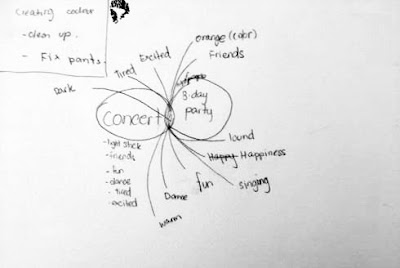 Creating colour
- clean up.
- Fix pants.
orange (color)
Friends
Excited
Tired
Dark
B-day
party
concert
- light stick
- friends
- fun
- dance
- tired
- excited
lound
Happy Happiness
singing
fun
Dance
warm